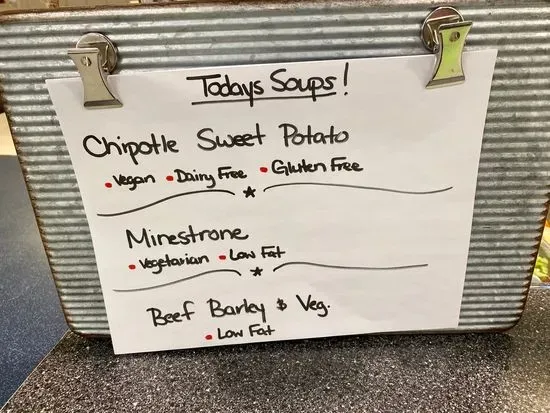 Todays Soups!
Chipotle Sweet Potato
• Vegan • Dairy Free • Gluten Free
Minestrone
• Vegetarian • Low Fat
Beef Barley & Veg.
• Low Fat